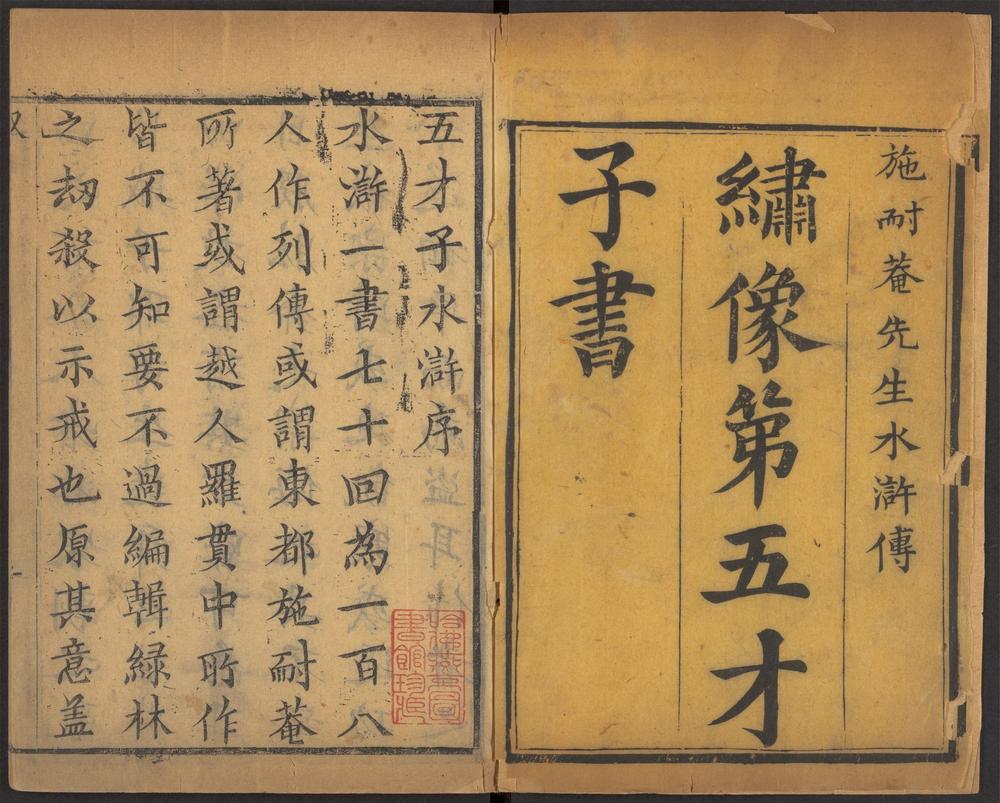 施耐菴先生水滸傳
繡像第五才
子書
五才子水滸序
水滸一書七十回為一百八
人作列傳或謂東都施耐菴
所著或謂越人羅貫中所作
皆不可知要不過編輯緑林
之刼殺以示戒也原其意葢
哈佛燕圖
書館珍印